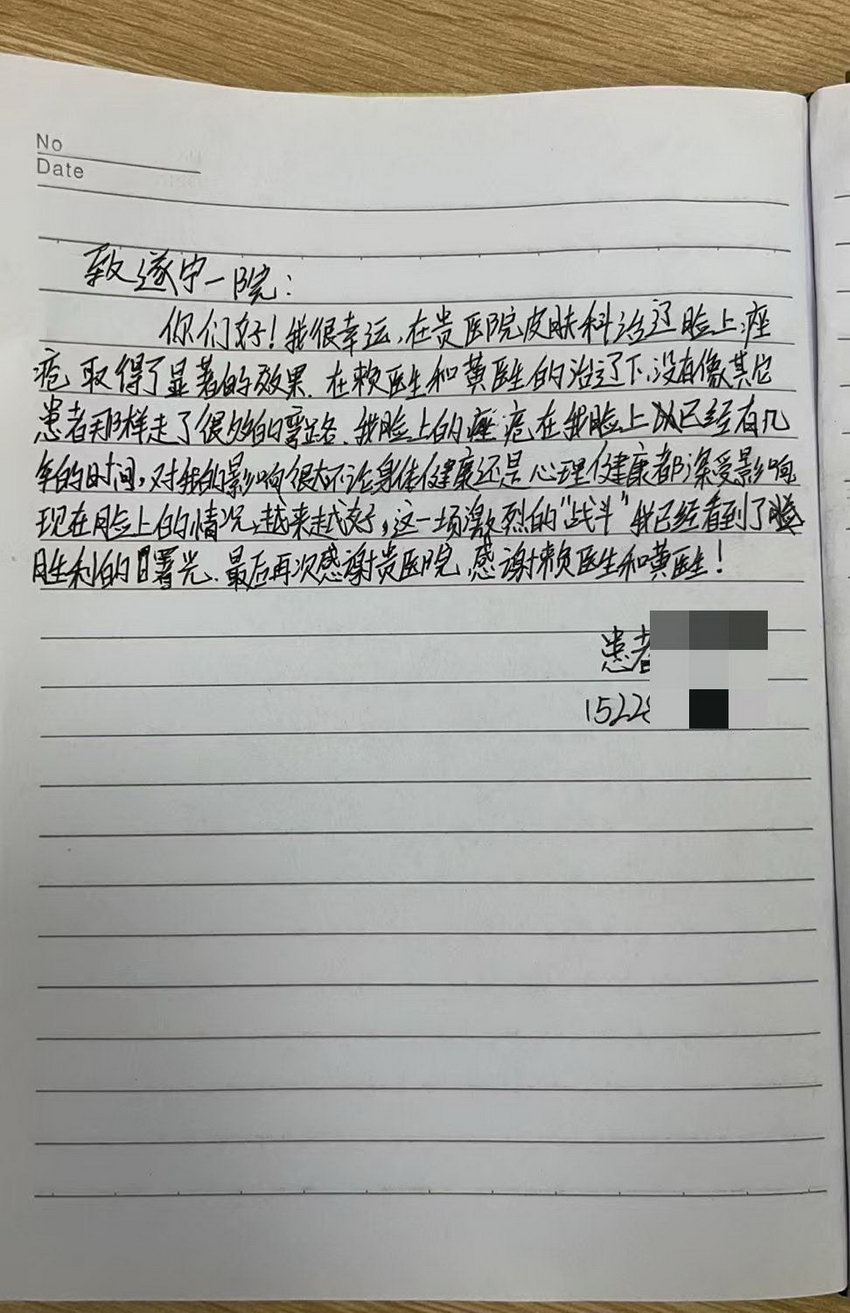 No
Date
致遂宁一院:
你们好!我很幸运,在贵医院皮肤科治辽脸上痤
疮,取得了显著的效果.在赖医生和黄医生的治辽下,没有像其它
患者那样走了很多的弯路.我脸上的痤疮在我脸上已经有几
年的时间,对我的影响很大不论身体健康还是心理健康都深受影响
现在脸上的情况,越来越好,这一场激烈的“战斗”我已经看到了
胜利的曙光.最后再次感谢贵医院,感谢赖医生和黄医生!
患者
1522